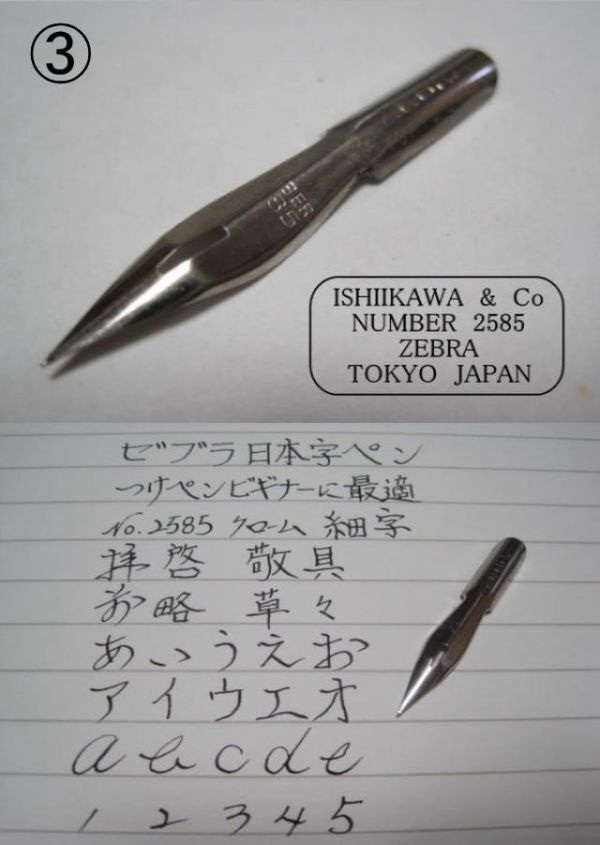 ③
BER
85
ISHIIKAWA & Co
NUMBER 2585
ZEBRA
TOKYO JAPAN
ゼブラ日本字ペン
つけペンビギナーに最適
No.2585 クローム 細字
拝啓 敬具
前略 草々
あいうえお
アイウエオ
a b c d e
1 2 3 4 5